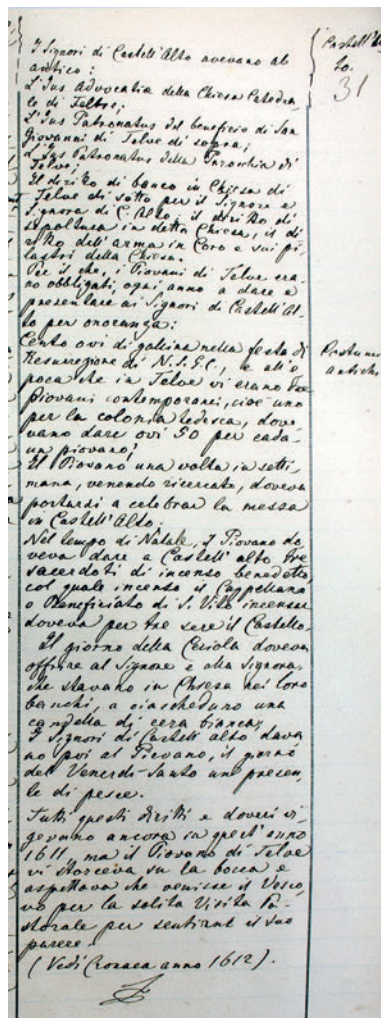 I Signori di Castell'Alto avevano ab
antico:
L'Jus Advocatia della Chiesa Catedra,
le di Feltre;
L'Jus Patronatus del beneficio di San
Giovanni di Telve di sopra;
L'Jus Patronatus della Parochia di
Telve;
Il diritto di banco in Chiesa di
Telve di sotto per il Signore e
Signora di C. Alto, il diritto di
sepoltura in detta Chiesa, il di
ritto dell'arma in Coro e sui pi,
lastri della Chiesa.
Per il che, i Piovani di Telve era,
no obbligati, ogni anno a dare e
presentare ai Signori di Castell'Al,
to per onoranza:
Cento ovi di gallina nella festa di
Resurregione di N.S.G.C., e all'e
poca che in Telve vi erano due
Piovani contemporanei, cioè uno
per la colonia tedesca, dove,
vano dare ovi 50 per cada,
un piovano;
Il Piovano una volta in setti,
mana, venendo ricercato, doveva
portarsi a celebrar la messa
in Castell'Alto.
Nel tempo di Natale, il Piovano do,
veva dare a Castell'alto tre
sacerdoti di incenso benedetto,
col quale incenso il Cappellano
o Beneficiato di S. Vito incensar
doveva per tre sere il Castello.
Il giorno della Ceriola doveva
offrire al Signore e alla Signora,
che stavano in Chiesa nei loro
banchi, a ciascheduno una
candella di cera bianca;
I Signori di Castell'alto dava,
no poi al Piovano, il giorno
del Venerdi-Santo un presen,
te di pesce.
Tutti questi diritti e doveri vi,
gevano ancora in quest'anno
1611, ma il Piovano di Telve
vi storceva su la bocca e
aspettava che venisse il Vesco,
vo per la solita Visita Pa,
storale per sentirne il suo
parere.
(Vedi Cronaca anno 1612).
Castell'Al
to.
31
Costumi
antichi